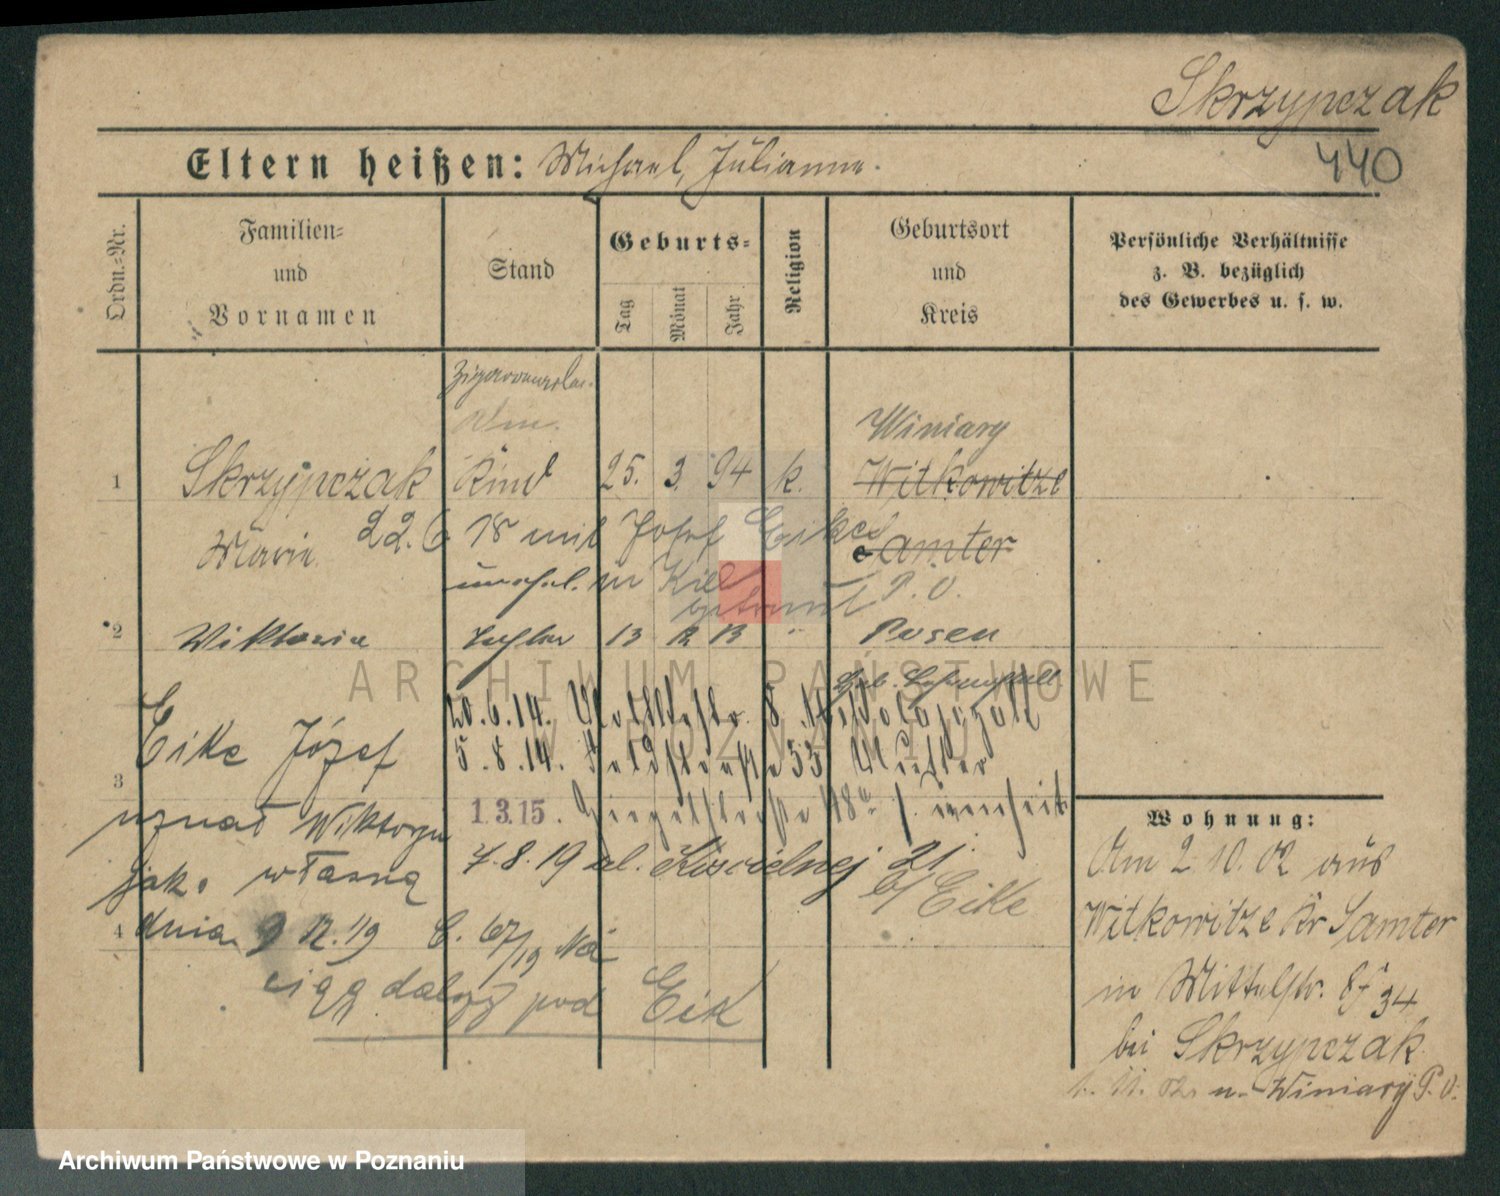 Skrzypczak
Eltern heißen: Michael, Julianna.
440
Ordn.=Nr.
Familien=
und
Vornamen
Stand
Geburts=
Tag
Monat
Jahr
Religion
Geburtsort
und
Kreis
Persönliche Verhältnisse
z. B. bezüglich
des Gewerbes u. s. w.
Winiary
1 Skrzypczak Kind 25. 3. 94 k. Witkowitze
Maria 22.6 18 mit Josef Eike Samter
in Kiel P. O.
getraut
2 Wiktoria Tochter 13 12 13 " Posen
20.6.14.
Eike Józef 5.8.14. 53
3
uznał Wiktorję 1.3.15.
jako własną 7.8.19 ul. Kościelnej 21
b/ Eike
4 dnia 9 12.19 C. 67/19
ciąg dalszy pod Eik
Wohnung:
Am 2.10.02 aus
Witkowitze Kr Samter
in Mittelstr. 34
bei Skrzypczak
n. Winiary P. O.
ARCHIWUM PAŃSTWOWE
W POZNANIU
Archiwum Państwowe w Poznaniu